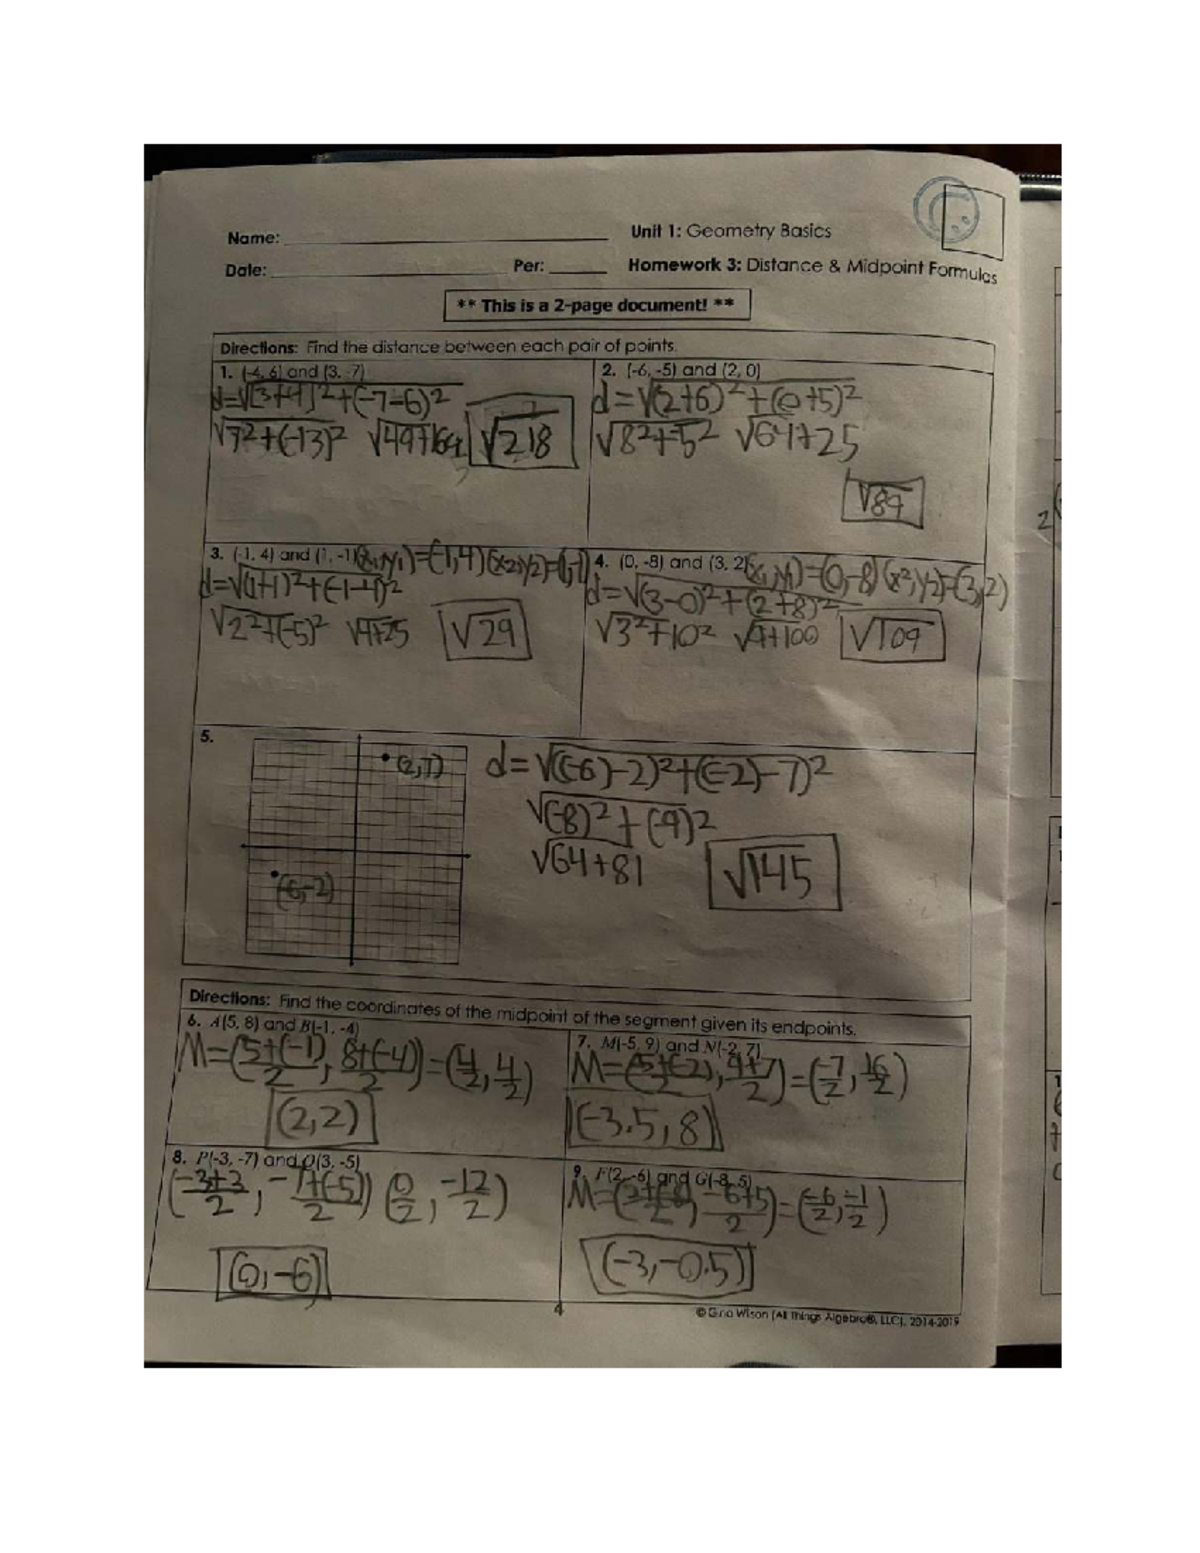 Name: Unit 1: Geometry Basics
Date: Per: Homework 3: Distance & Midpoint Formulas
** This is a 2-page document! **
Directions: Find the distance between each pair of points.
1. (-4, 6) and (3, -7)
d=√(3+4)²+(-7-6)²
√7²+(-13)² √49+169 √218
2. (-6, -5) and (2, 0)
d=√(2+6)²+(0+5)²
√8²+5² √64+25
√89
3. (-1, 4) and (1, -1) (x₁,y₁)=(-1,4) (x₂,y₂)=(1,-1)
d=√(1+1)²+(-1-4)²
√2²+(-5)² √4+25 √29
4. (0, -8) and (3, 2) (x₁,y₁)=(0,-8) (x₂,y₂)=(3,2)
d=√(3-0)²+(2+8)²
√3²+10² √9+100 √109
5.
(2,7)
(-6,-2)
d=√((-6)-2)²+((-2)-7)²
√(-8)²+(-9)²
√64+81 √145
Directions: Find the coordinates of the midpoint of the segment given its endpoints.
6. A(5, 8) and B(-1, -4)
M=(5+(-1)/2, 8+(-4)/2)=(4/2, 4/2)
(2,2)
7. M(-5, 9) and N(-2, 7)
M=(-5+(-2)/2, 9+7/2)=(-7/2, 16/2)
(-3.5,8)
8. P(-3, -7) and Q(3, -5)
(-3+3/2, -7+(-5)/2) (0/2, -12/2)
(0,-6)
9. F(2, -6) and G(-8, 5)
M=(2+(-8)/2, -6+5/2)=(-6/2, -1/2)
(-3,-0.5)
4
© Gina Wilson (All Things Algebra®, LLC), 2014-2019